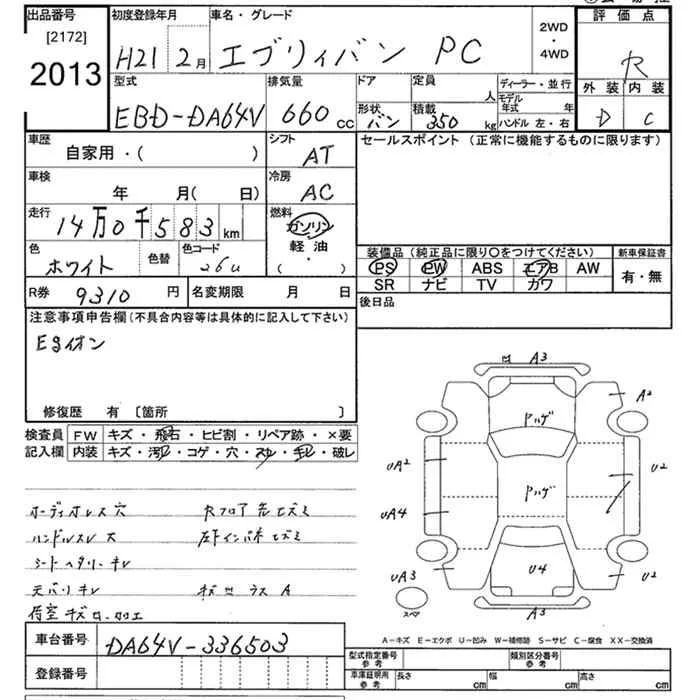 出品番号
[2172]
2013
初度登録年月
H21 2月
車名・グレード
エブリィバン PC
2WD
・
4WD
評価点
R
外装 内装
D C
型式
EBD-DA64V
排気量
660 cc
ドア
形状 バン
定員
人
積載 350 kg
ディーラー・並行
モデル年式 年
ハンドル 左・右
車歴
自家用・( )
シフト
AT
セールスポイント(正常に機能するものに限ります)
車検
年 月( 日)
冷房
AC
走行
14万0千583km
燃料
ガソリン
軽油
( ・ )
色
ホワイト
色替
色コード
26U
装備品(純正品に限り○をつけてください)
新車保証書
PS PW ABS エアB AW
SR ナビ TV カワ
有・無
R券 9310円
名変期限 月 日
後日品
注意事項申告欄(不具合内容等は具体的に記入して下さい)
Egイオン
修復歴 有 〔箇所 〕
検査員記入欄
FW キズ・飛石・ヒビ割・リペア跡・×要
内装 キズ・汚レ・コゲ・穴・スレ・キレ・破レ
オーディオレス 穴
ハンドルスレ 大
天バリキレ
A3
A2
UA2
UA4
UA3
U2
U2
ハゲ
ハゲ
U4
A3
スペア
A-キズ E-エクボ U-凹み W-補修跡 S-サビ C-腐食 XX-交換済
車台番号 DA64V-336503
登録番号
型式指定番号 参考
類別区分番号 参考
車庫証明用 参考
長さ cm
幅 cm
高さ cm